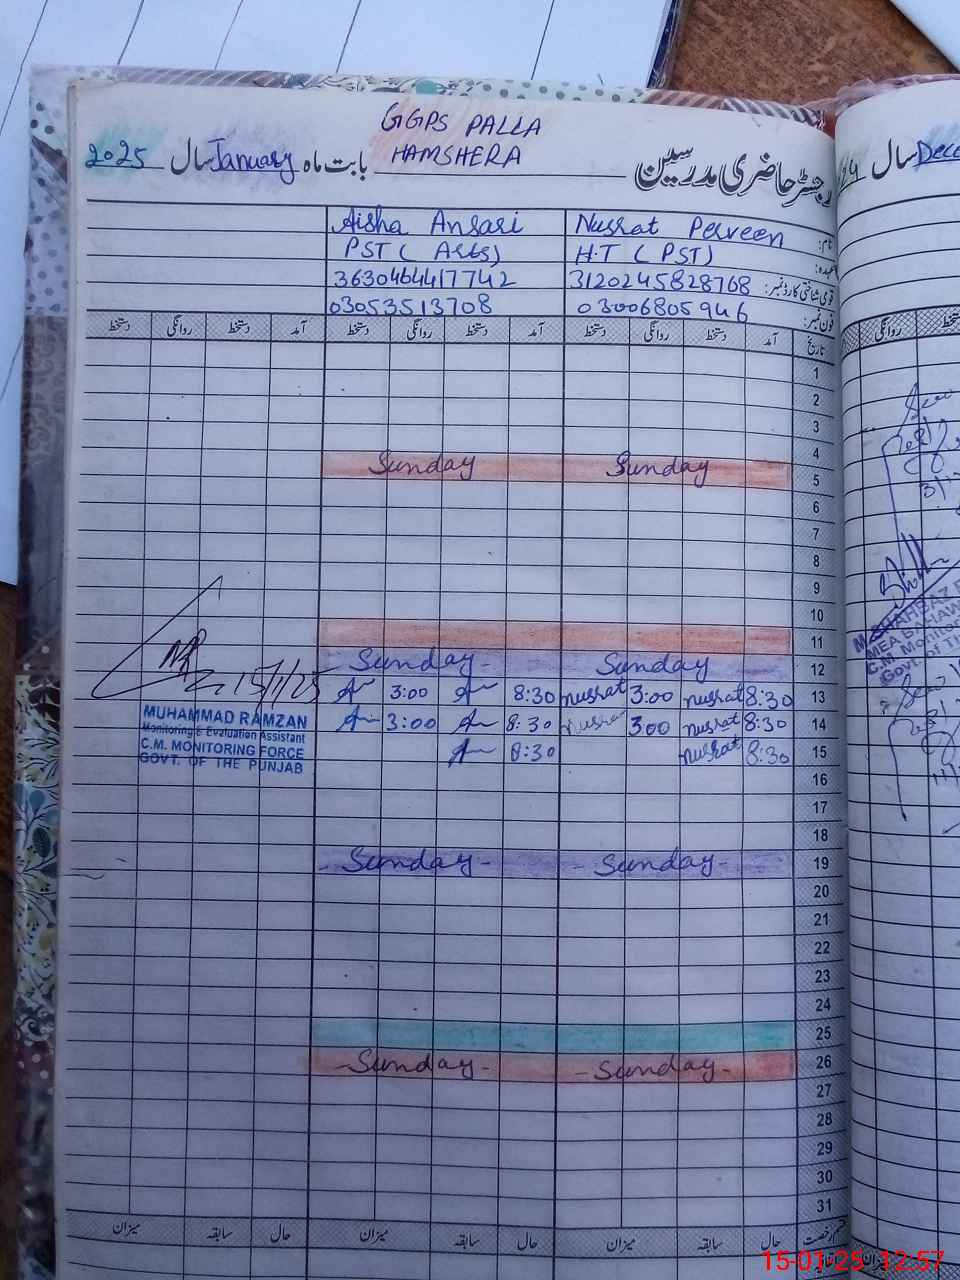 GGPS PALLA
HAMSHERA
رجسٹر حاضری مدرسین بابت ماہ January سال 2025
سال Dece
24
نام: Nusrat Perveen Aisha Ansari
عہدہ: H.T (PST) PST (Arts)
قومی شناختی کارڈ نمبر: 3120245828768 3630464417742
فون نمبر: 03006805946 03053513708
تاریخ آمد دستخط روانگی دستخط آمد دستخط روانگی دستخط آمد دستخط روانگی دستخط
1
2
3
4
Sunday Sunday 5
6
7
8
9
10
11
Sunday- Sunday 12
3:00 8:30 nusrat 3:00 nusrat 8:30 13
3:00 8:30 nusrat 3:00 nusrat 8:30 14
8:30 nusrat 8:30 15
16
17
18
-Sunday- -Sunday- 19
20
21
22
23
24
25
-Sunday- -Sunday- 26
27
28
29
30
31
15/1/25
MUHAMMAD RAMZAN
Monitoring & Evaluation Assistant
C.M. MONITORING FORCE
GOVT. OF THE PUNJAB
روانگی
حال سابقہ میزان حال سابقہ میزان حال سابقہ میزان
15-01-25 12:57